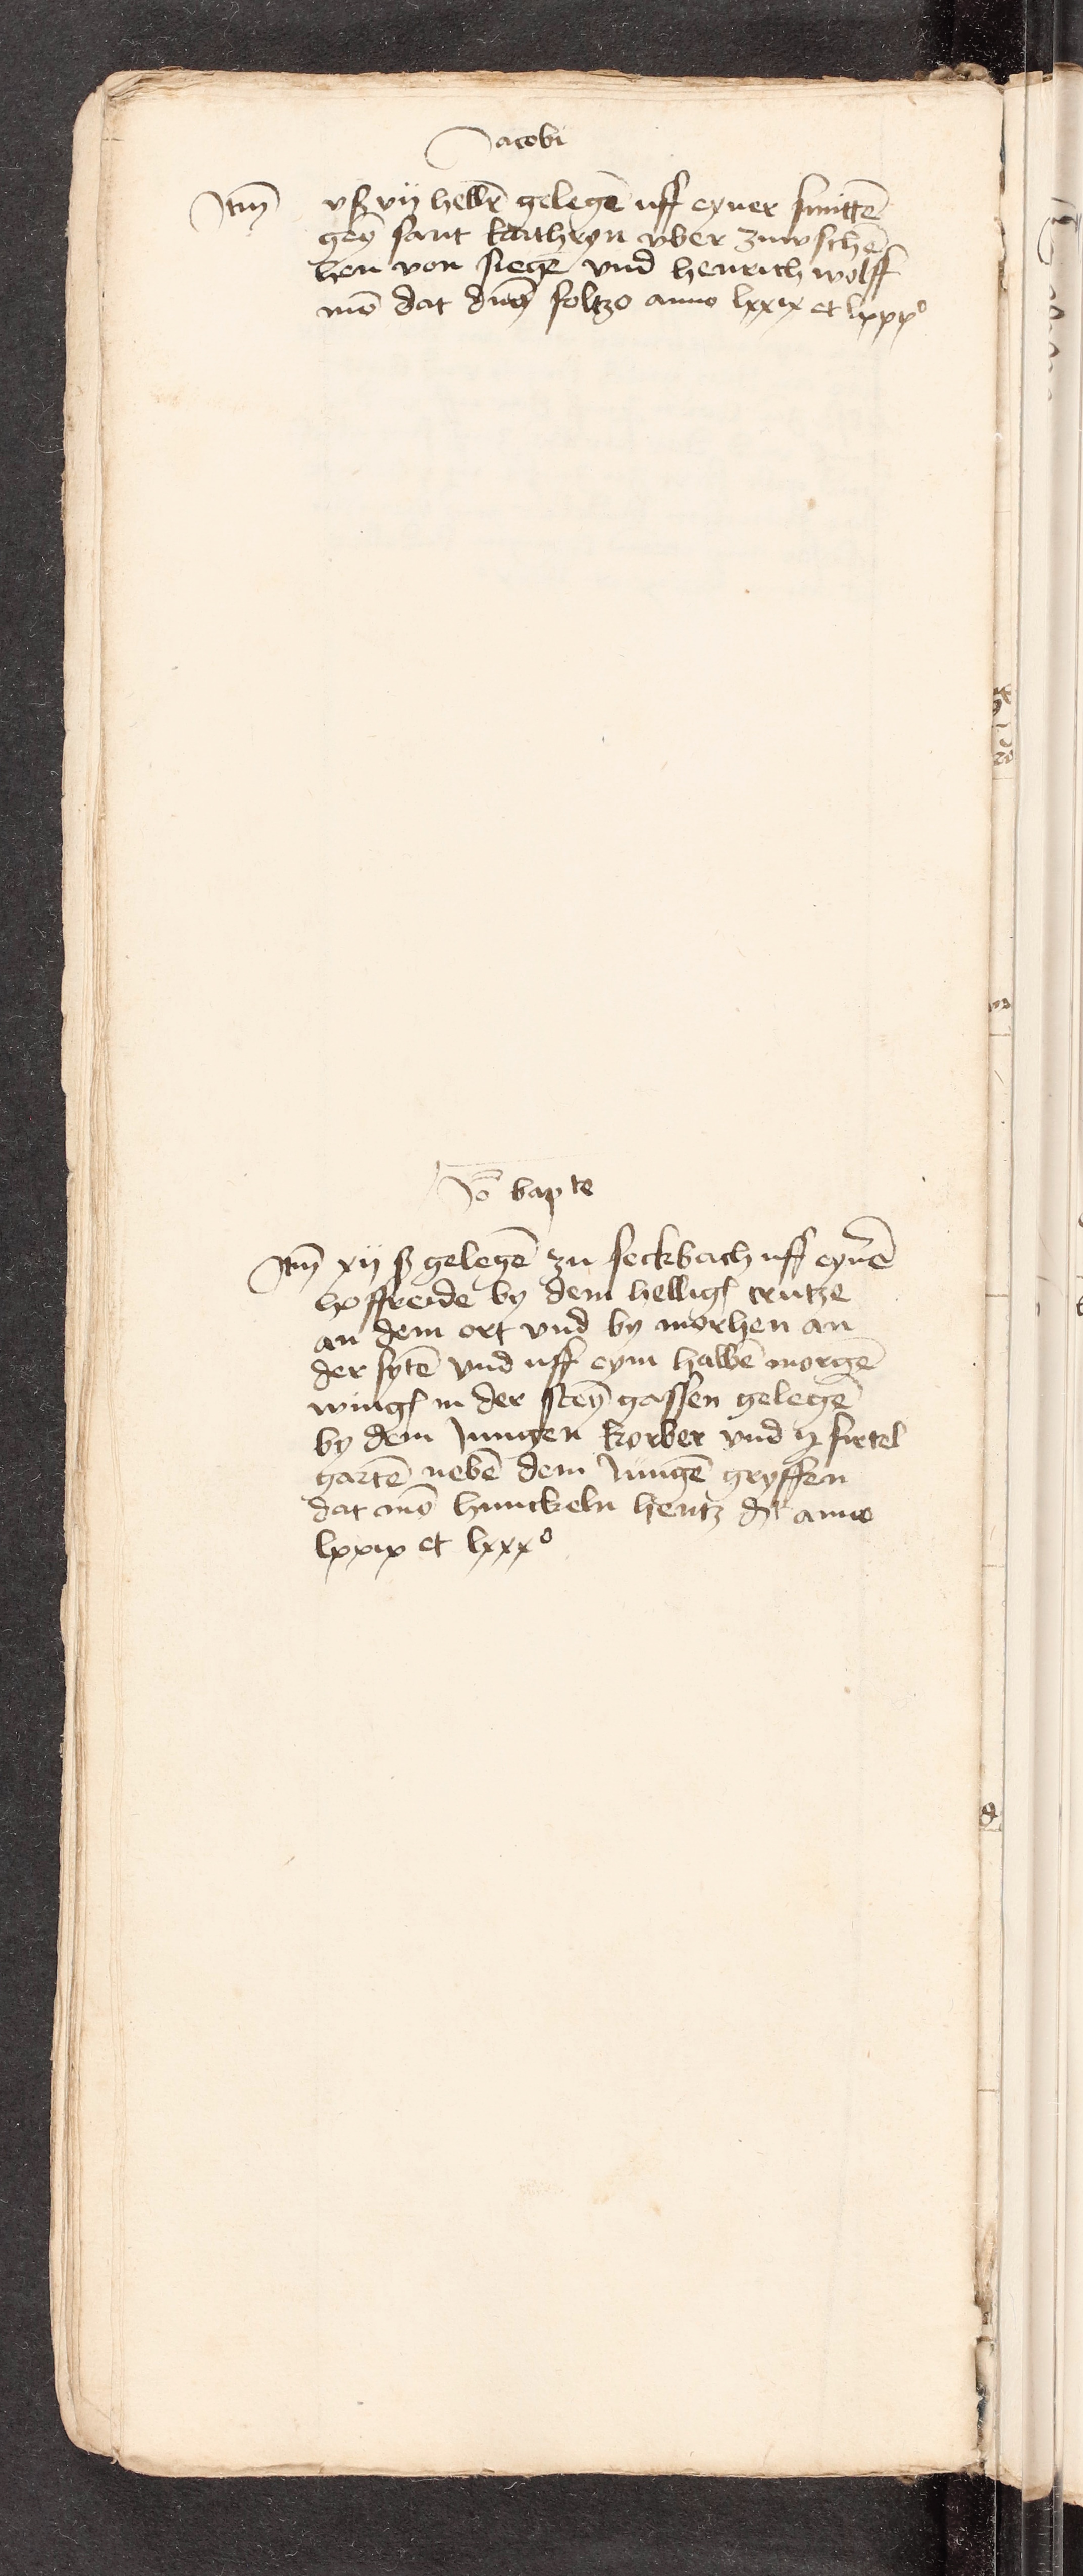 Jacobi
Itm̄ v ß vij hellr̄ gelegē uff eyner smittē
geȳ sant kathryn vber zuwschē
hen von siegē vnd henrich wolff
mō dat dn̄s soltzo anno lxxix et lxxxº
Jo bapte
Itm̄ xij ß gelegē zu seckbach uff eynē
hoffreide by dem hellig crutze
an dem ort vnd by morhen an
der sytē vnd uff eym halbē morgē
wing in der steȳ gassen gelegē
by dem Jungen korber vnd j firtel
gartē nebē dem Jungē gryffen
dat mō hunckeln hentz dt anno
lxxix et lxxxº